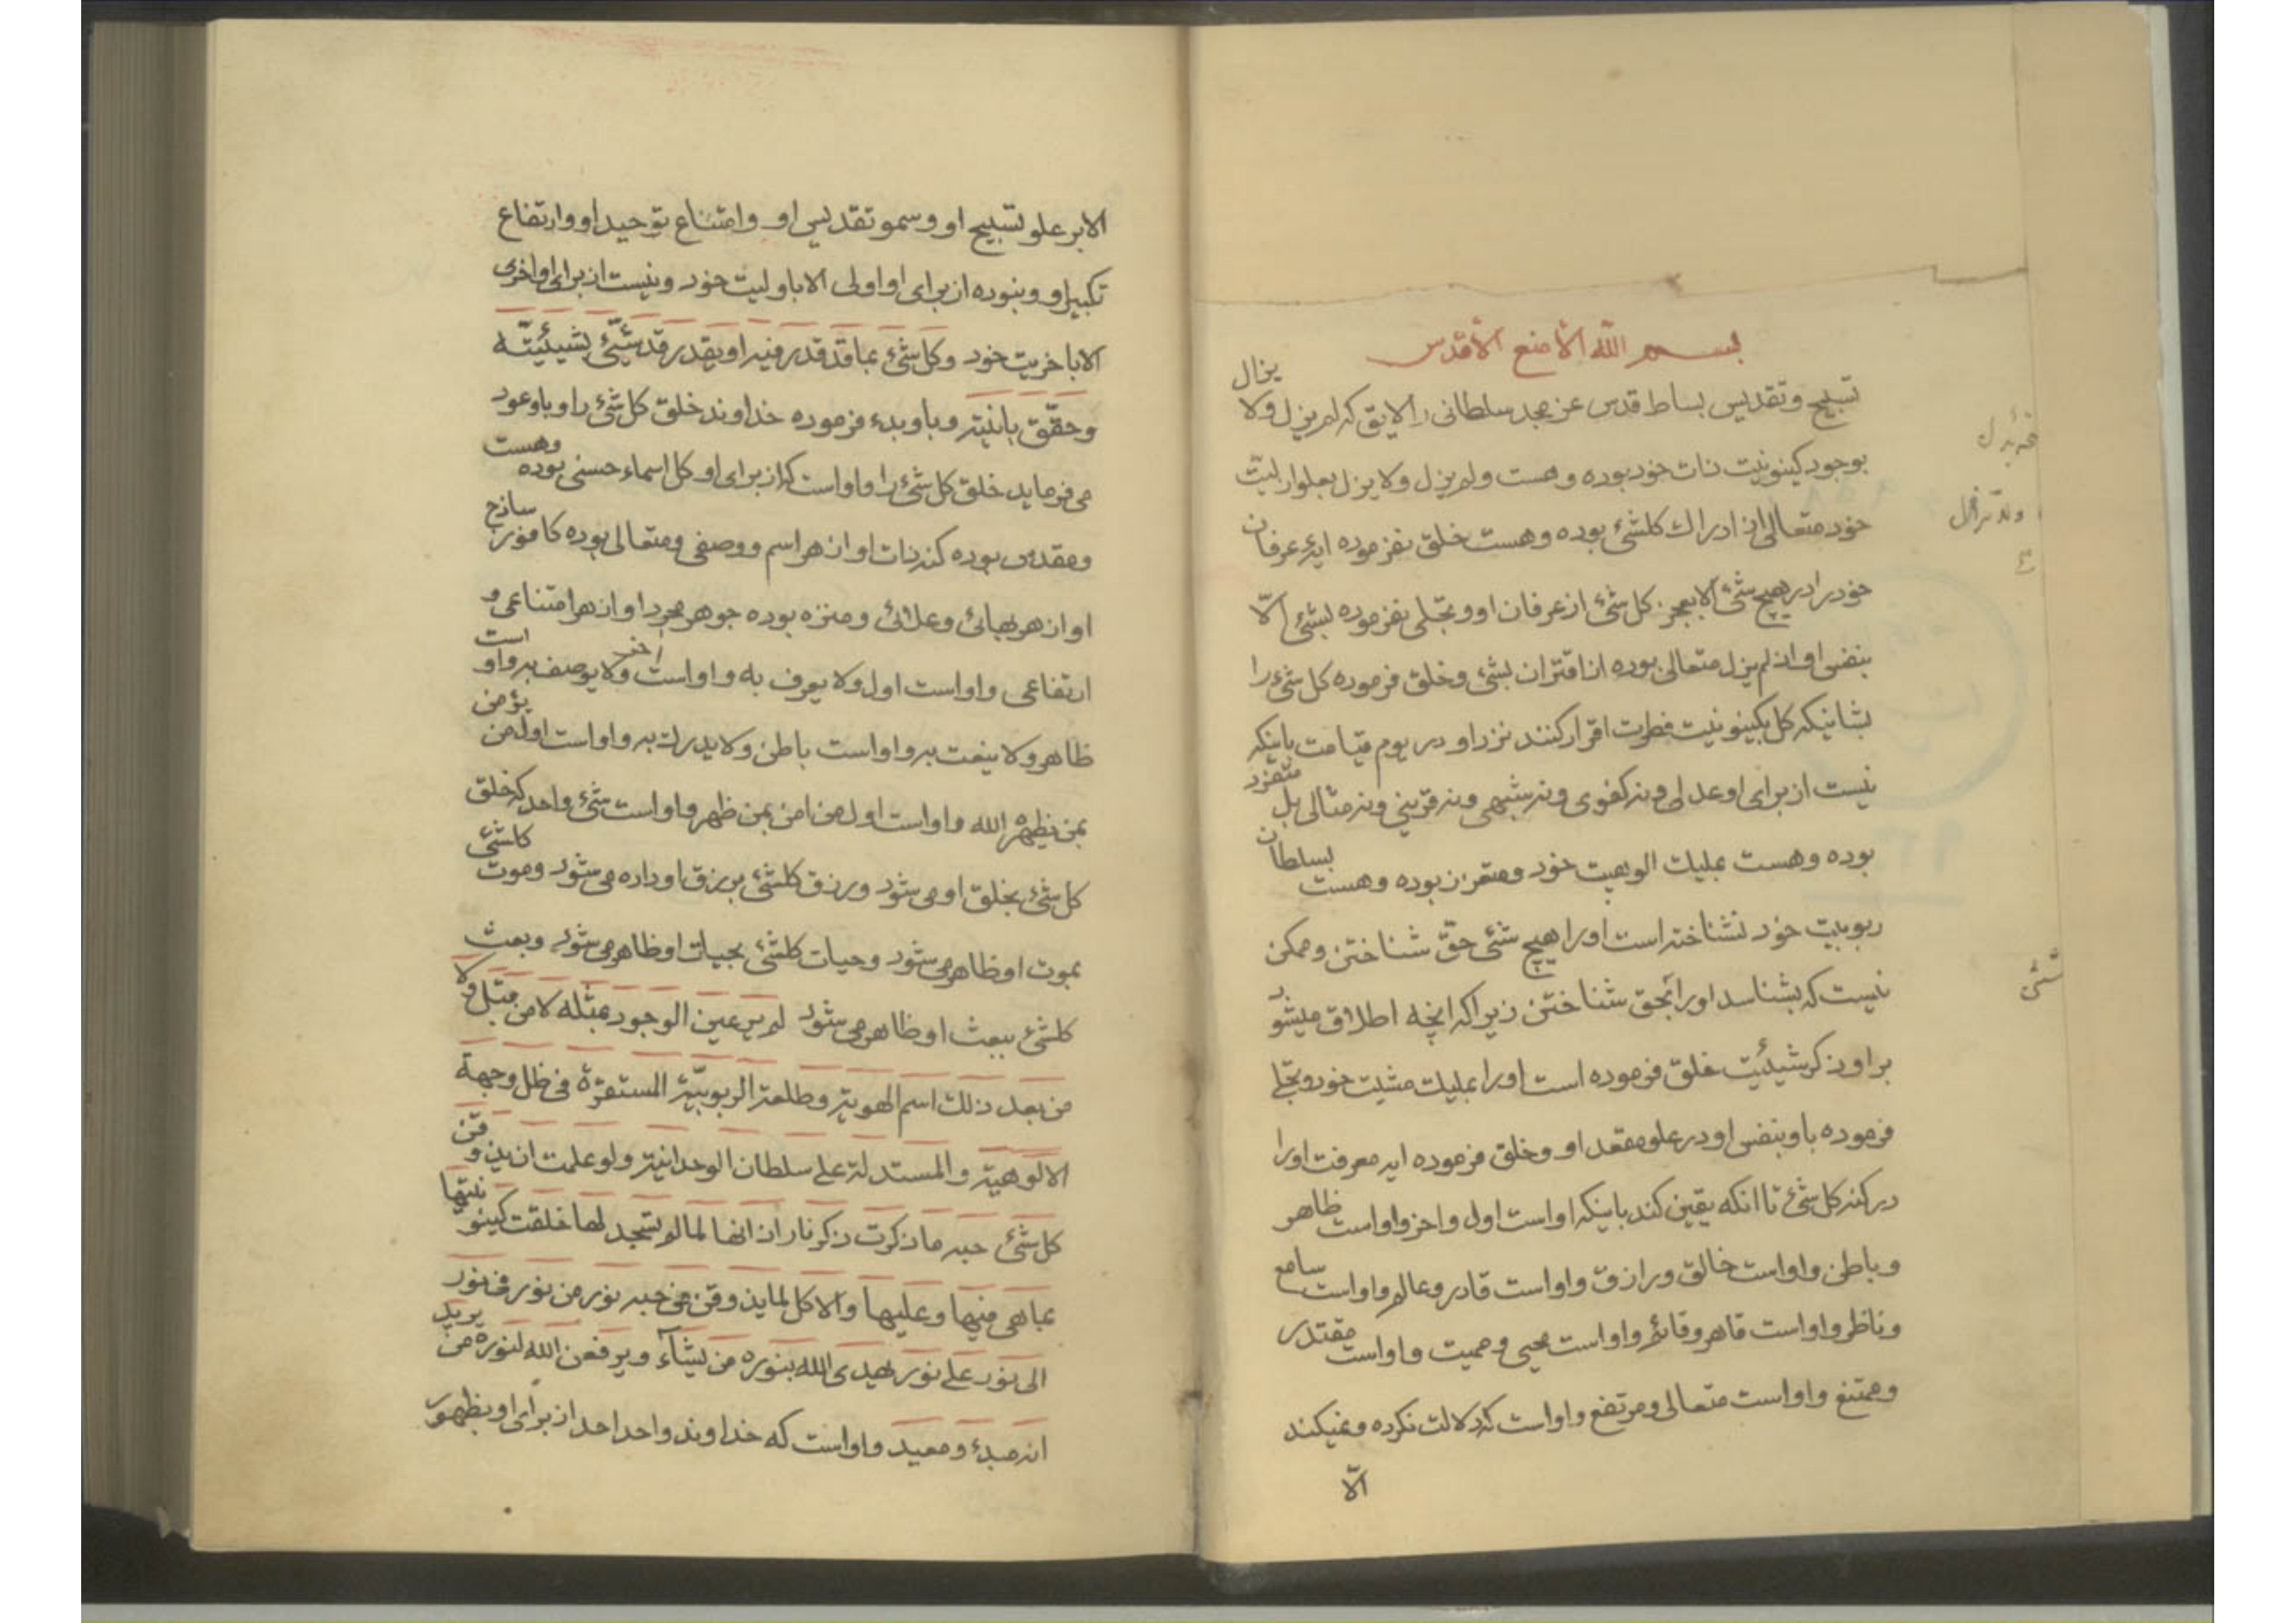 بسم الله الأمنع الأقدس
تسبیح و تقدیس بساط قدس عز مجد سلطانی را لایق که لم یزل و لا یزال
بوجود کینونیت ذات خود بوده و هست و لم یزل و لا یزل بعلو ازلیت
خود متعالی از ادراك کلشئ بوده و هست خلق نفرموده ایهٔ عرفان
خود را در هیچ شئ الا بعجز کل شئ از عرفان او و تجلی نفرموده بشئ الا
بنفس او اذ لم یزل متعالی بوده از اقتران بشئ و خلق فرموده کل شئ را
بشانیکه کل بکینونیت فطرت اقرار کنند نزد او در یوم قیامت باینکه
نیست از برای او عدلی و نه کفوی و نه شبهی و نه قرینی و نه مثالی بل متفرد
بوده و هست بملیك الوهیت خود و متعزز بوده و هست بسلطان
ربوبیت خود نشناخته است او را هیچ شئ حق شناختن و ممکن
نیست که بشناسد او را بحق شناختن زیرا که انچه اطلاق میشود
بر او ذکر شیئیت خلق فرموده است او را بملیك مشیت خود و تجلی
فرموده باو بنفس او در علو مقعد او و خلق فرموده ایه معرفت او را
در کنه کل شئ تا انکه یقین کند باینکه او است اول و اخر و او است ظاهر
و باطن و او است خالق و رازق و او است قادر و عالم و او است سامع
و ناظر و او است قاهر و قائم و او است محیی و ممیت و او است مقتدر
و ممتنع و او است متعالی و مرتفع و او است که دلالت نکرده و نمیکند
الا
شئ
الا بر علو تسبیح او و سمو تقدیس او و امتناع توحید او و ارتفاع
تکبیر او و نبوده از برای او اولی الا باولیت خود و نیست از برای او اخری
الا باخریت خود و کل شئ بما قد قدر فیه او یقدر قد شیّئ بشیئیته
و حقق بانیته و باو بدء فرموده خداوند خلق کل شئ را و باو عود
می فرماید خلق کل شئ را و او است که از برای او کل اسماء حسنی بوده و هست
و مقدس بوده کنه ذات او از هر اسم و وصفی و متعالی بوده کافور ساذج
او از هر بهائی و علائی و منزه بوده جوهر مجرد او از هر امتناعی و
ارتفاعی و او است اول و لا یعرف به و او است اخر و لا یوصف به و او است
ظاهر و لا ینعت به و او است باطن و لا یدرك به و او است اول من یؤمن
بمن یظهره الله و او است اول من امن بمن ظهر و او است شئ واحد که خلق
کل شئ بخلق او می شود و رزق کلشئ برزق او داده می شود و موت کلشئ
بموت او ظاهر می شود و حیات کلشئ بحیات او ظاهر می شود و بعث
کلشئ ببعث او ظاهر می شود لم یر عین الوجود بمثله لا من قبل و لا
من بعد ذلك اسم الهویة و طلعة الربوبیة المستقرة فی ظل وجهة
الالوهیة و المستدلة علی سلطان الوحدانیة و لو علمت ان یذوقن
کل شئ حبه ما ذکرت ذکر نار اذ انها لما لم تسجد لها خلقت کینونیتها
بما هی فیها و علیها و الا کل لما یذوقن من حبه نور من نور فی نور
الی نور علی نور یهدی الله بنوره من یشاء و یرفعن الله لنوره من یرید
انه مبدئ و معید و او است که خداوند واحد احد از برای او بظهور